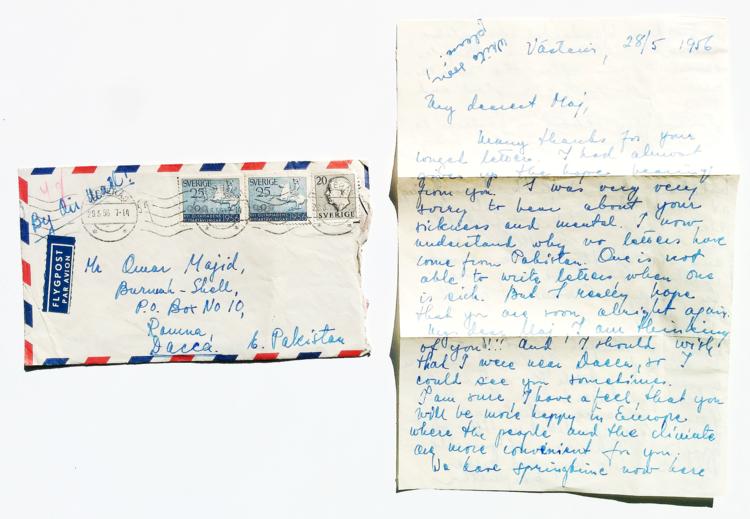 By air mail!
VÄSTERÅS
29.5.56 7-14
SVERIGE
25
SVERIGE
25
20
SVERIGE
FLYGPOST
PAR AVION
Mr Omar Majid,
Burmah-Shell,
P.O. Box No 10,
Ramna,
Dacca. E. Pakistan
Write soon!
please!
Västerås, 28/5 1956
My dearest Maj,
Many thanks for your
longed letter. I had almost
given up the hope hearing
from you. I was very very
sorry to hear about your
sickness and mental. I now
understand why no letters have
come from Pakistan. One is not
able to write letters when one
is sick. But I really hope
that you are soon alright again.
My dear Maj, I am thinking
of you!!! and I should wish
that I were near Dacca, so I
could see you sometimes.
I am sure, I have a feel, that you
will be more happy in Europe
where the people and the climate
are more convenient for you.
We have springtime now here